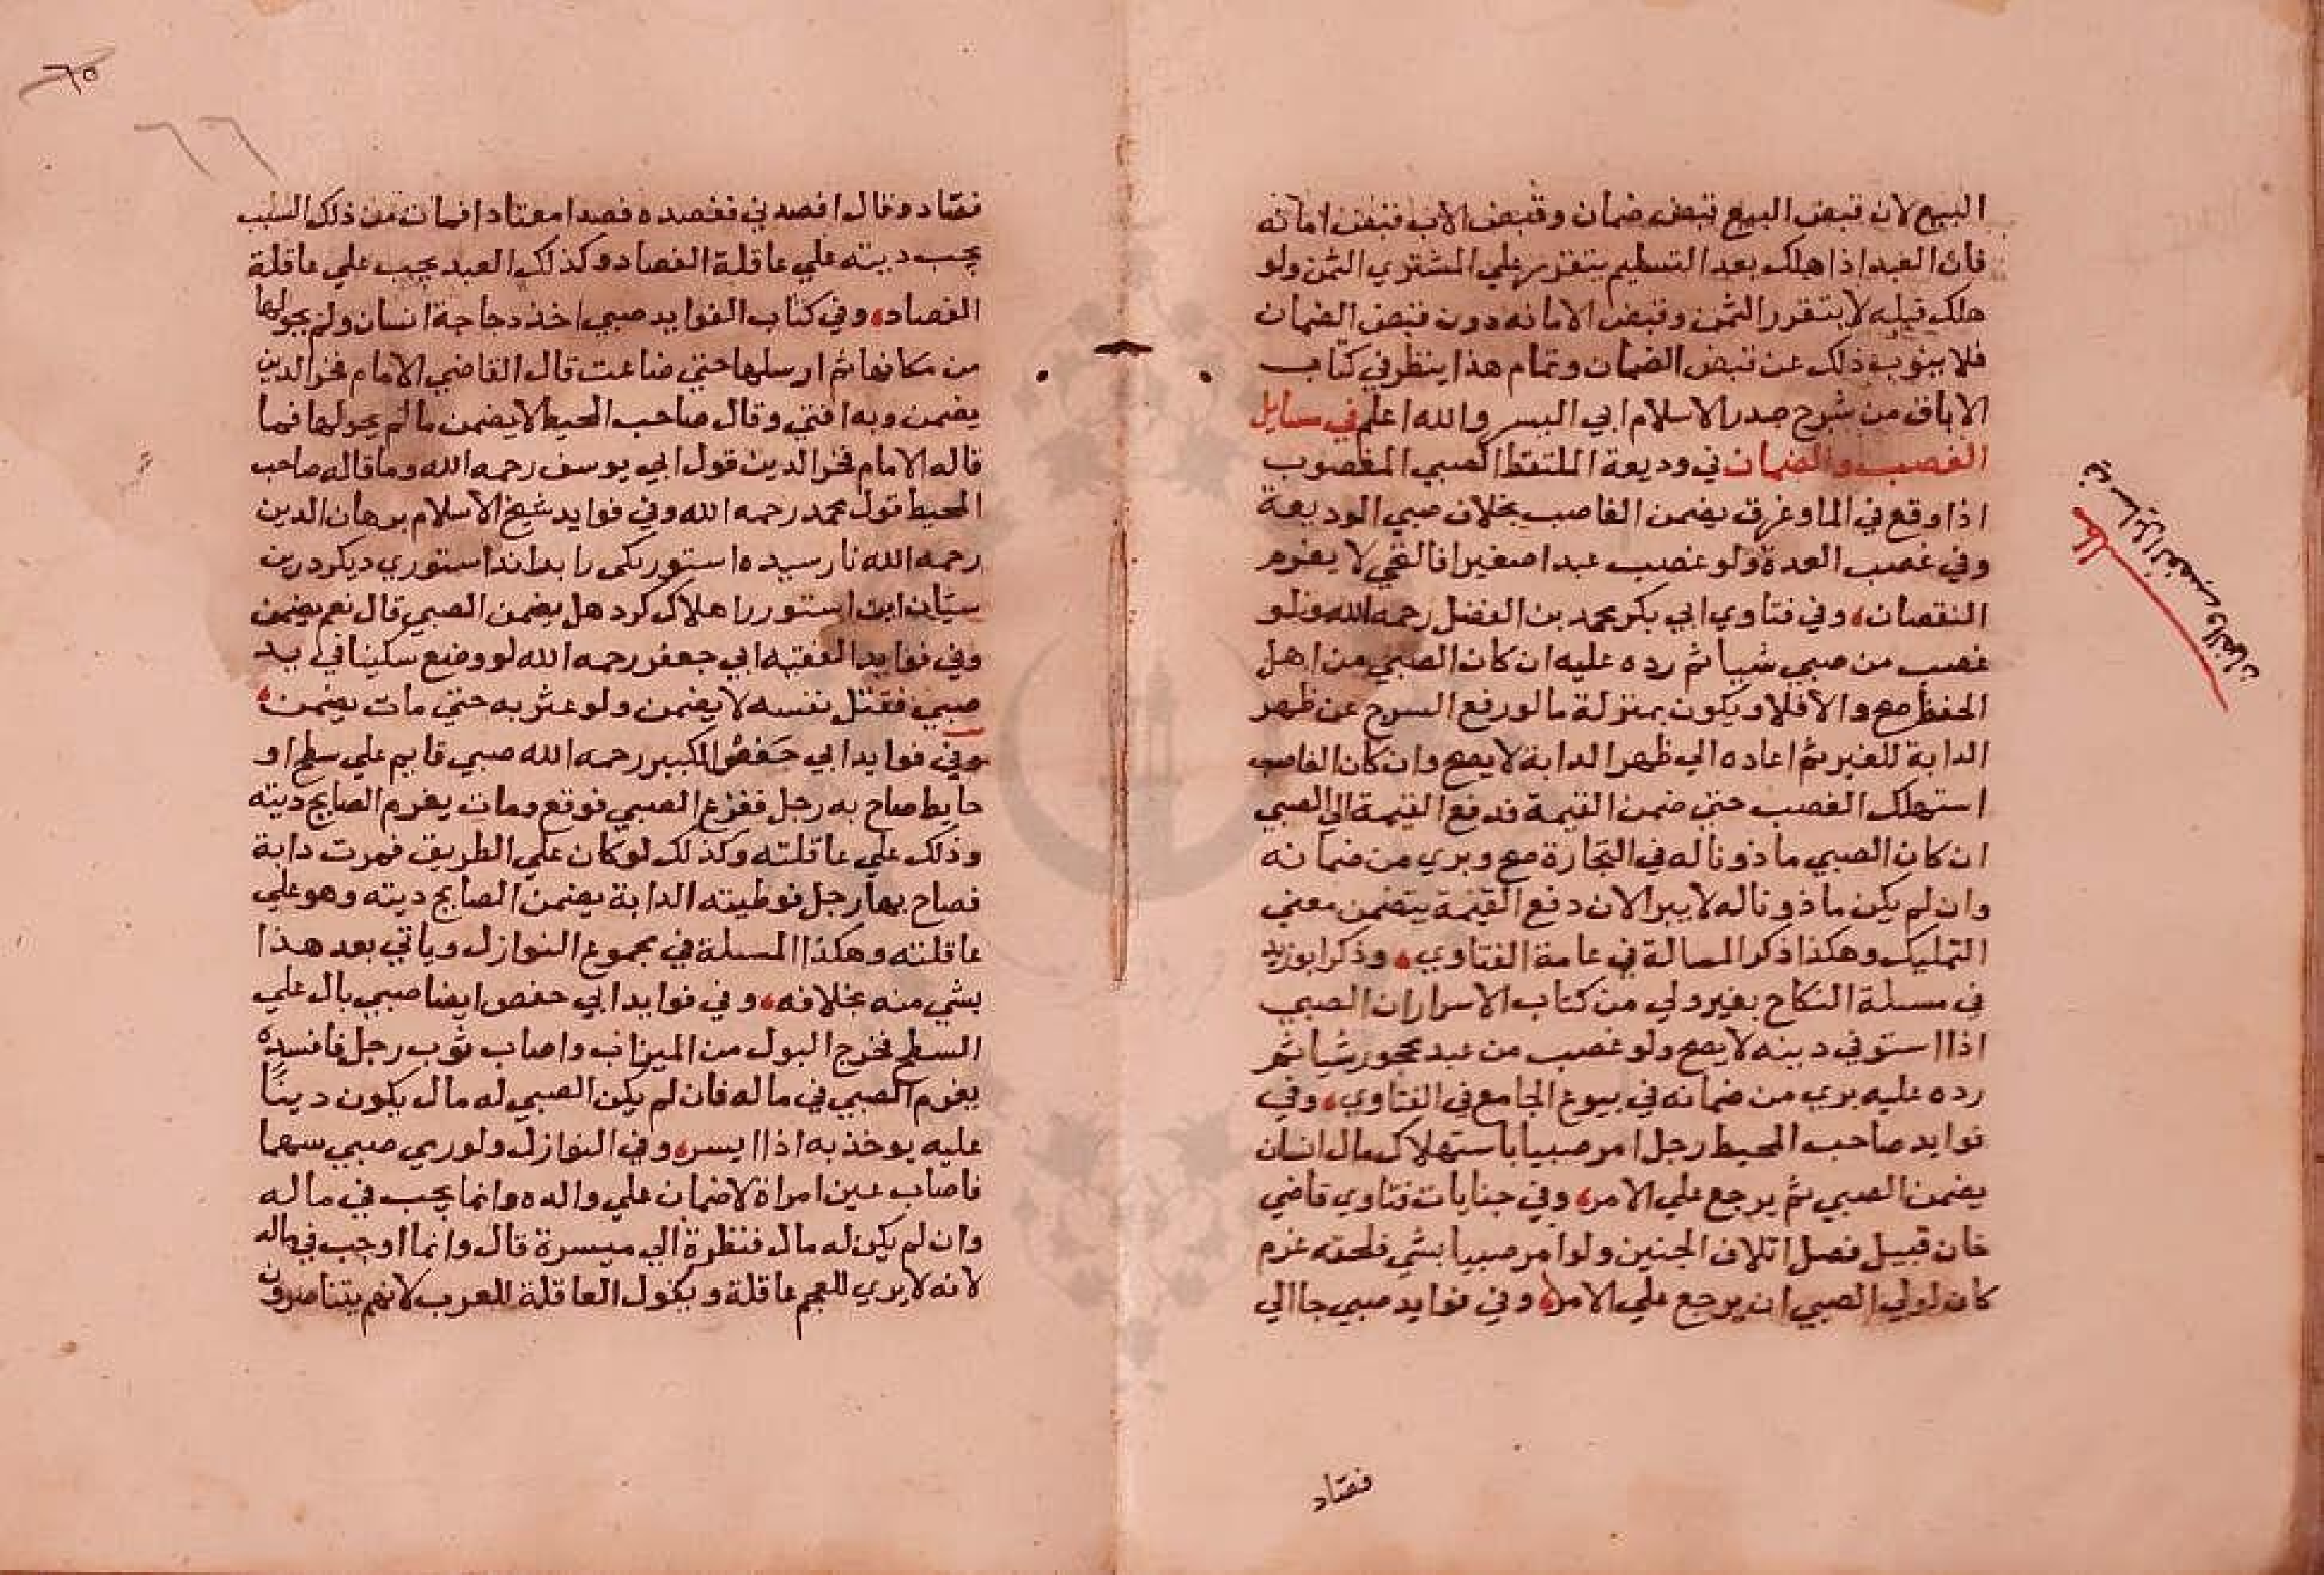 البيع لان قبض البيع قبض ضمان وقبض الاب قبض امانه
فان العبد اذا هلك بعد التسليم يتقرر علي المشتري الثمن ولو
هلك قبله لا يتقرر الثمن وقبض الامانه دون قبض الضمان
فلا ينوب ذلك عن قبض الضمان وتمام هذا ينظر في كتاب
الاباق من شرح صدر الاسلام ابي اليسر والله اعلم في مسايل
الغصب والضمان في وديعة الملتقط الصبي المغصوب
اذا وقع في الما وغرق يضمن الغاصب بخلاف صبي الوديعة
وفي غصب العدة ولو غصب عبدا صغيرا فالتحي لا يغرم
النقصان، وفي فتاوي ابي بكر محمد بن الفضل رحمه الله ولو
غصب من صبي شيا ثم رده عليه ان كان الصبي من اهل
الحفظ صح والا فلا ويكون بمنزلة ما لو رفع السرج عن ظهر
الدابة للغير ثم اعاده الي ظهر الدابة لا يصح وان كان الغاصب
استهلك الغصب حتي ضمن القيمة فدفع القيمة الي الصبي
ان كان الصبي ماذونا له في التجارة صح وبري من ضمانه
وان لم يكن ماذونا له لا يبرا لان دفع القيمة يتضمن معني
التمليك وهكذا ذكر المسالة في عامة الفتاوي، وذكر ابو زيد
في مسلة النكاح بغير ولي من كتاب الاسرار ان الصبي
اذا استوفي دينه لا يصح ولو غصب من عبد محجور شيا ثم
رده عليه بري من ضمانه في بيوع الجامع في الفتاوي، وفي
فوايد صاحب المحيط رجل امر صبيا باستهلاك مال انسان
يضمن الصبي ثم يرجع علي الامر، وفي جنايات فتاوي قاضي
خان قبيل فصل اتلاف الجنين ولو امر صبيا بشي فلحقه غرم
كان لولي الصبي ان يرجع علي الامر، وفي فوايد صبي جا الي
في مسايل الغصب والضمان
فصاد
٦٥
٦٦
فصاد وقال افصدني ففصده فصدا معتادا فمات من ذلك السبب
يجب ديته علي عاقلة الفصاد وكذلك العبد يجب علي عاقلة
الفصاد، وفي كتاب الفوايد صبي اخذ دجاجة انسان ولم يحولها
من مكانها ثم ارسلها حتي ضاعت قال القاضي الامام فخر الدين
يضمن وبه افتي وقال صاحب المحيط لا يضمن ما لم يحولها فما
قاله الامام فخر الدين قول ابي يوسف رحمه الله وما قاله صاحب
المحيط قول محمد رحمه الله وفي فوايد شيخ الاسلام برهان الدين
رحمه الله نارسيده استور يكي را براند استوري ديكر درين
ميان اين استور را هلاك كرد هل يضمن الصبي قال نعم يضمن
وفي فوايد الفقيه ابي جعفر رحمه الله لو وضع سكينا في يد
صبي فقتل نفسه لا يضمن ولو عثر به حتي مات يضمن،
وفي فوايد ابي حَفص الكبير رحمه الله صبي قايم علي سطح او
حايط صاح به رجل ففزع الصبي فوقع ومات يغرم الصايح ديته
وذلك علي عاقلته وكذلك لو كان علي الطريق فمرت دابة
فصاح بها رجل فوطيته الدابة يضمن الصايح ديته وهو علي
عاقلته وهكذا المسلة في مجموع النوازل وياتي بعد هذا
بشي منه بخلافه، وفي فوايد ابي حفص ايضا صبي بال علي
السطح فخرج البول من الميزاب واصاب ثوب رجل فافسده
يغرم الصبي في ماله فان لم يكن الصبي له مال يكون دينًا
عليه يوخذ به اذا ايسر، وفي النوازل ولو رمي صبي سهما
فاصاب عين امراة لا ضمان علي والده وانما يجب في ماله
وان لم يكن له مال فنظرة الي ميسرة قال وانما اوجب في ماله
لانه لا يري للعجم عاقلة ويكول العاقلة للعرب لانهم يتناصرون